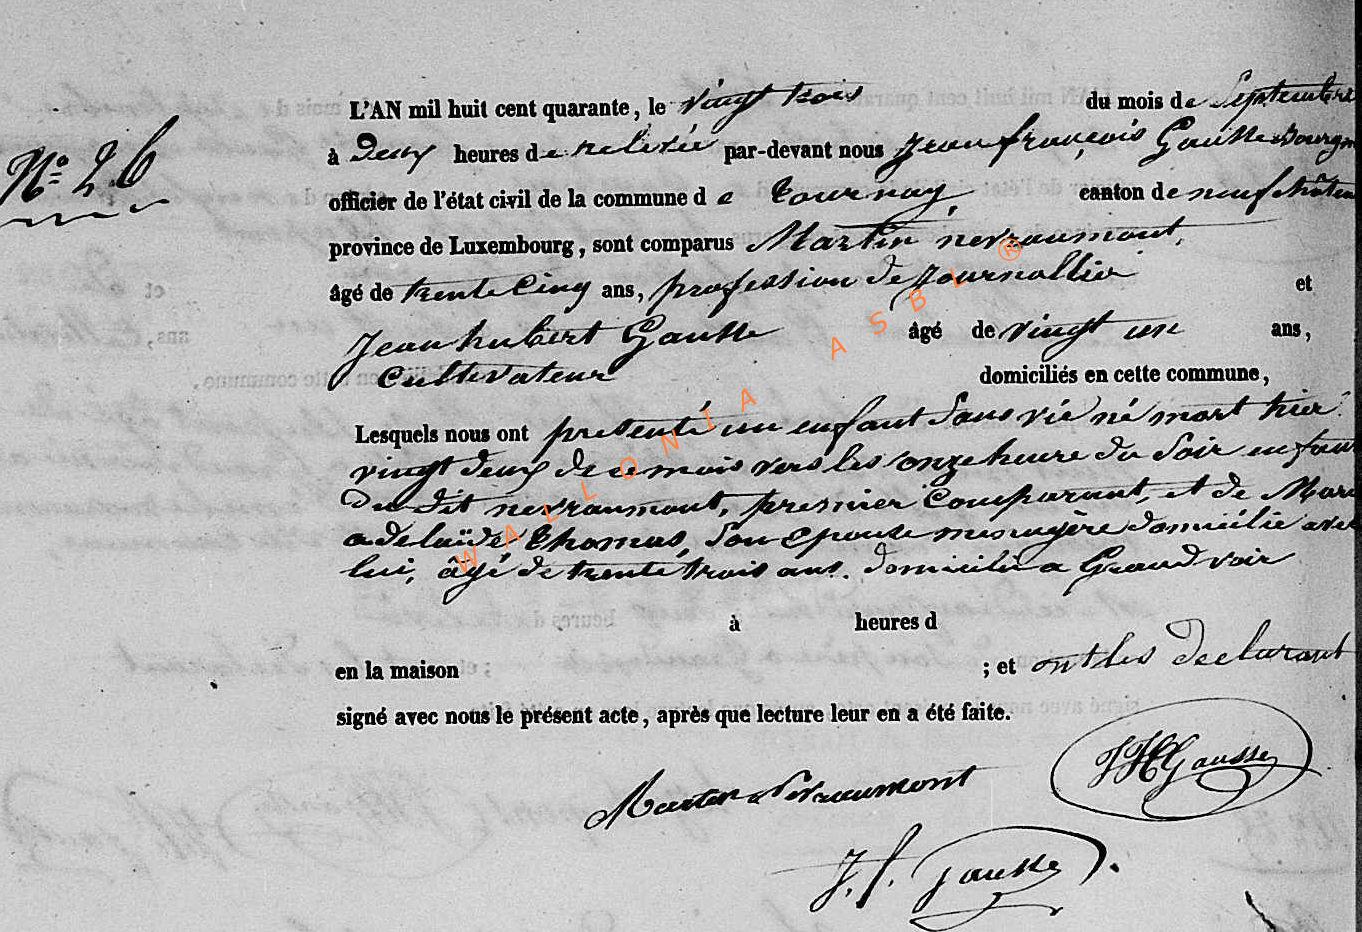 N° 26
L'AN mil huit cent quarante, le vingt trois du mois de Septembre
à deux heures de relevée par-devant nous Jean françois Gausse Bourgm
officier de l'état civil de la commune de tournay, canton de neufchâteau
province de Luxembourg, sont comparus Martin nevraumont,
âgé de trente Cinq ans, profession de Journallier et
Jean hubert Gausse âgé de vingt un ans,
Cultivateur domiciliés en cette commune,
Lesquels nous ont presenté un enfant Sans vie né mort hier
vingt deux de ce mois vers les onze heure du Soir enfant
du dit nevraumont, premier Comparant, et de Marie
adelaïde Thomas, Son epouse menagère domicilié avec
lui, âgé de trente trois ans. domicilié a Grandvoir
à heures d
en la maison ; et ont les declarant
signé avec nous le présent acte, après que lecture leur en a été faite.
Martin Nevraumont
JHGausse
J. f. Gausse
WALLONIA ASBL ®